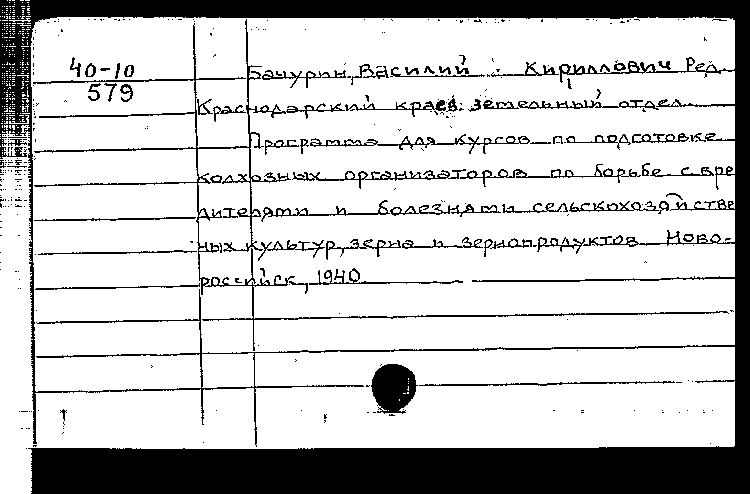 40-10
579
Бачурин, Василий Кириллович Ред.
Краснодарский краев. земельный отдел.
Программа для курсов по подготовке
колхозных организаторов по борьбе с вре
дителями и болезнями сельскохозяйстве
ных культур, зерна и зернопродуктов Ново-
российск, 1940